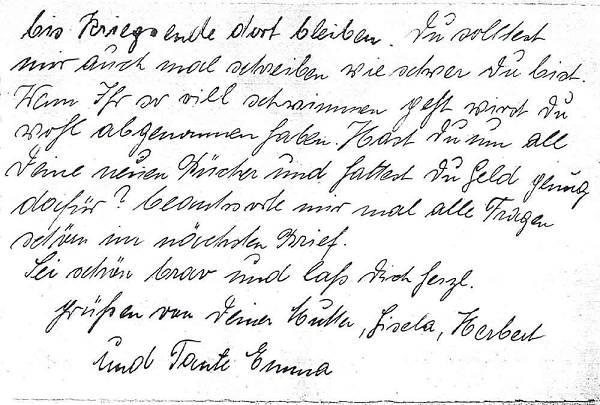 bis Kriegsende dort bleiben. Du solltest
mir auch mal schreiben wie schwer Du bist.
Wenn Ihr so viel schwimmen geht wirst Du
wohl abgenommen haben. Hast Du nun all
Deine neuen Bücher und hattest Du Geld genug
dafür? beantworte mir mal alle Fragen
schön im nächsten Brief.
Sei schön brav und laß Dich herzl.
grüßen von Deiner Mutter, Gisela, Herbert
und Tante Emma